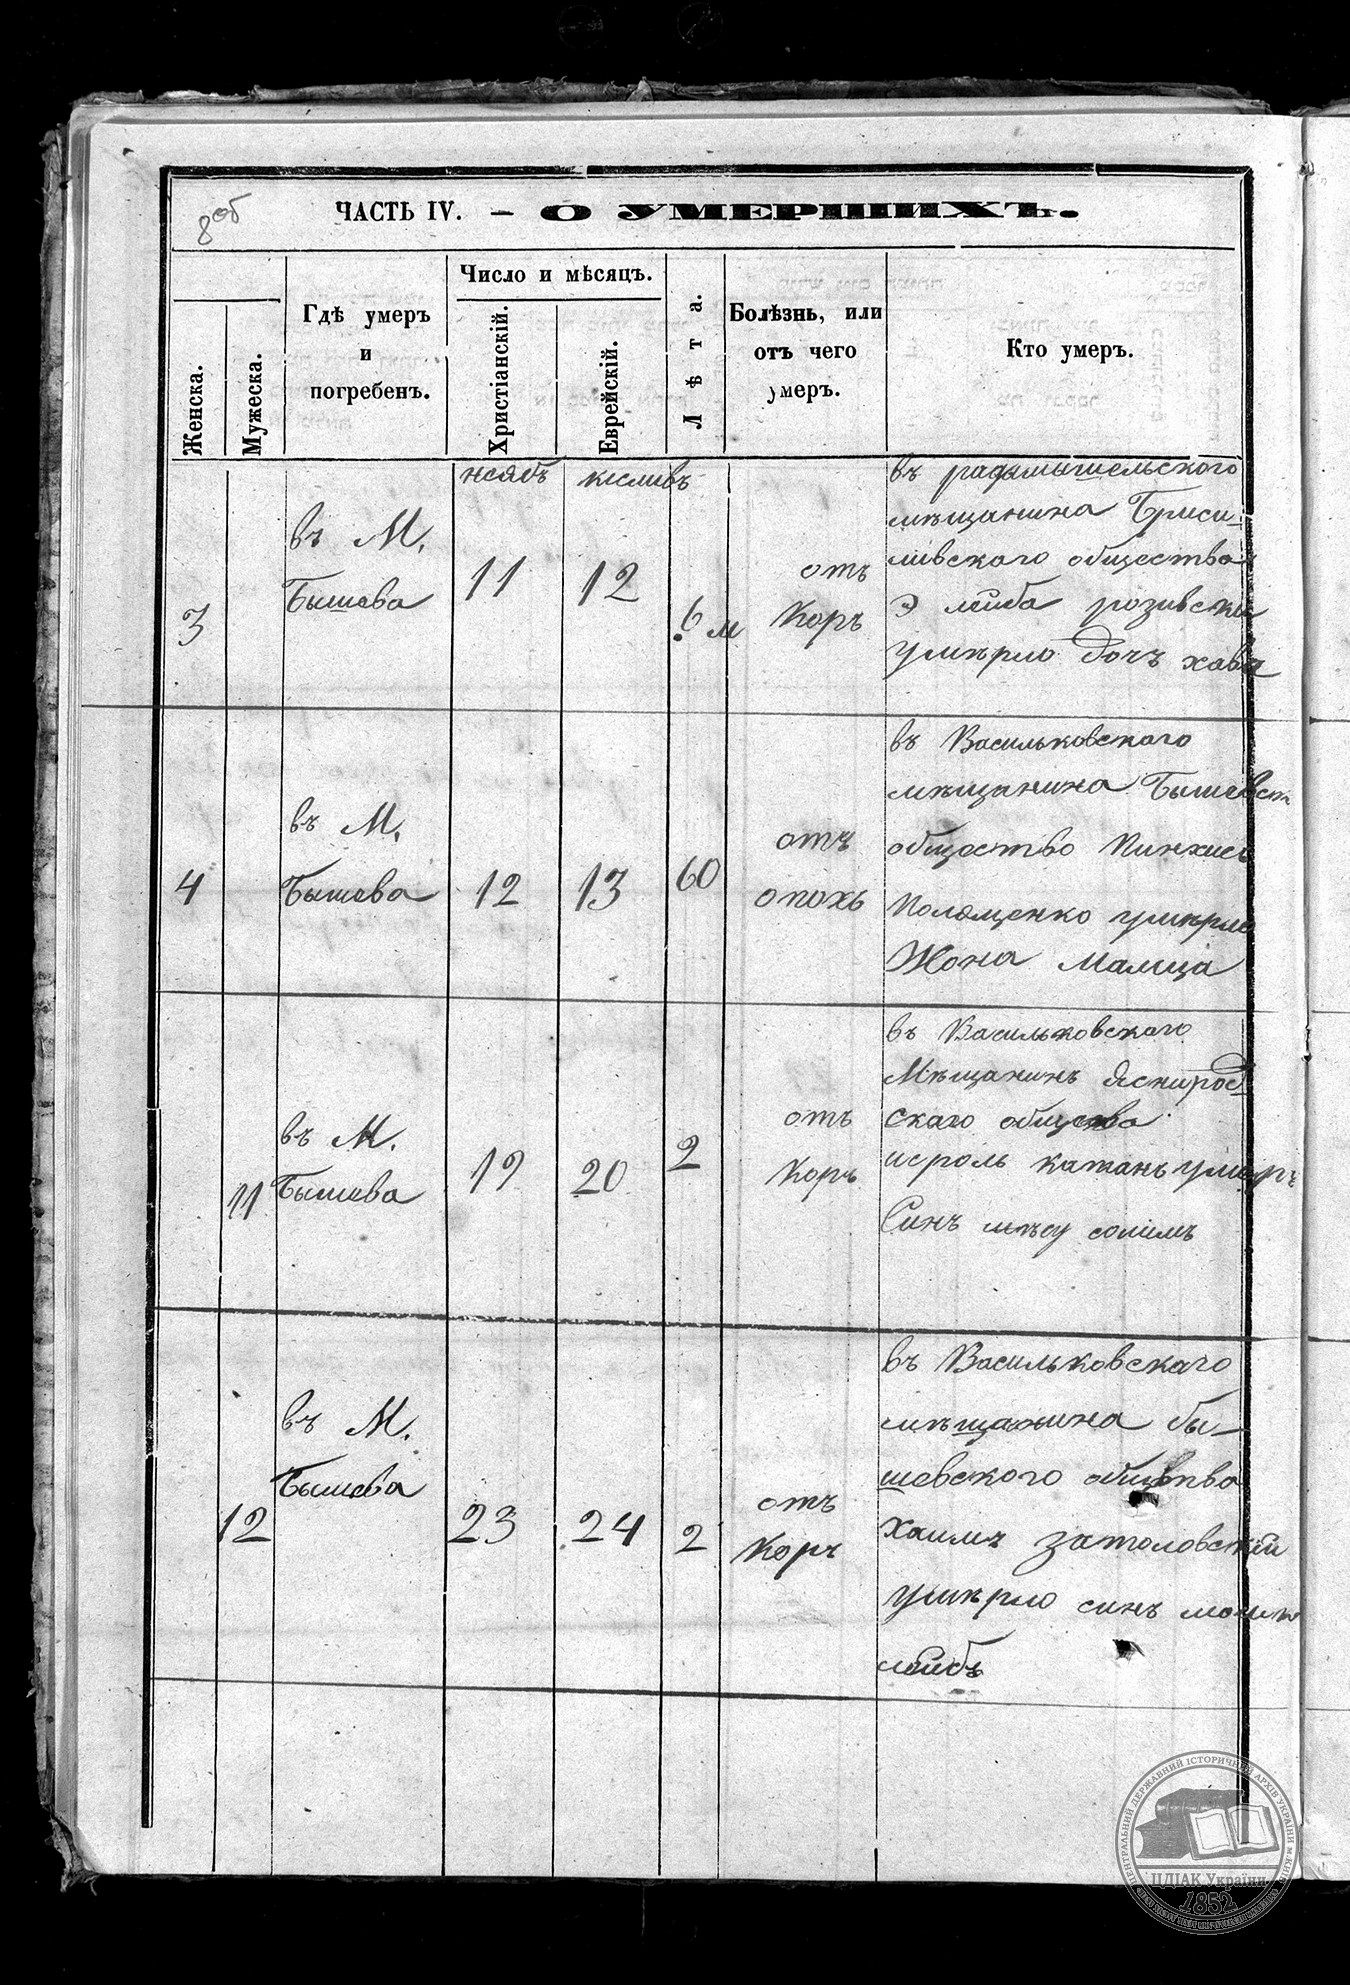 8об
ЧАСТЬ IV. – О УМЕРШИХЪ.
Женска.
Мужеска.
Гдѣ умеръ
и
погребенъ.
Число и мѣсяцъ.
Христіанскій.
Еврейскій.
Лѣта.
Болѣзнь, или
отъ чего
умеръ.
Кто умеръ.
ноябъ кисливъ
3
въ М.
Бышева
11
12
6 м
отъ
Коръ
въ радымышельского
мѣщанина Бруси-
ливского общества
Э лейба розивски
умѣрло дочъ хава
4
въ М.
Бышева
12
13
60
отъ
опохъ
въ Васильковского
мѣщанина Бышевск
общество Пинхис
умѣрло
Жона Малица
11
въ М.
Бышева
19
20
2
отъ
Коръ
въ Васильковского
Мѣщанинъ Яснирод-
скаго общсва
исроль катанъ умеръ
Синъ солимъ
12
въ М.
Бышева
23
24
2
отъ
Коръ
въ Васильковскаго
мѣщанина бы-
шевского общетва
Хаимъ затоловский
умѣрло синъ
лейбъ
ЦЕНТРАЛЬНИЙ ДЕРЖАВНИЙ ІСТОРИЧНИЙ АРХІВ УКРАЇНИ М.КИЇВ
ЦДІАК України
1852